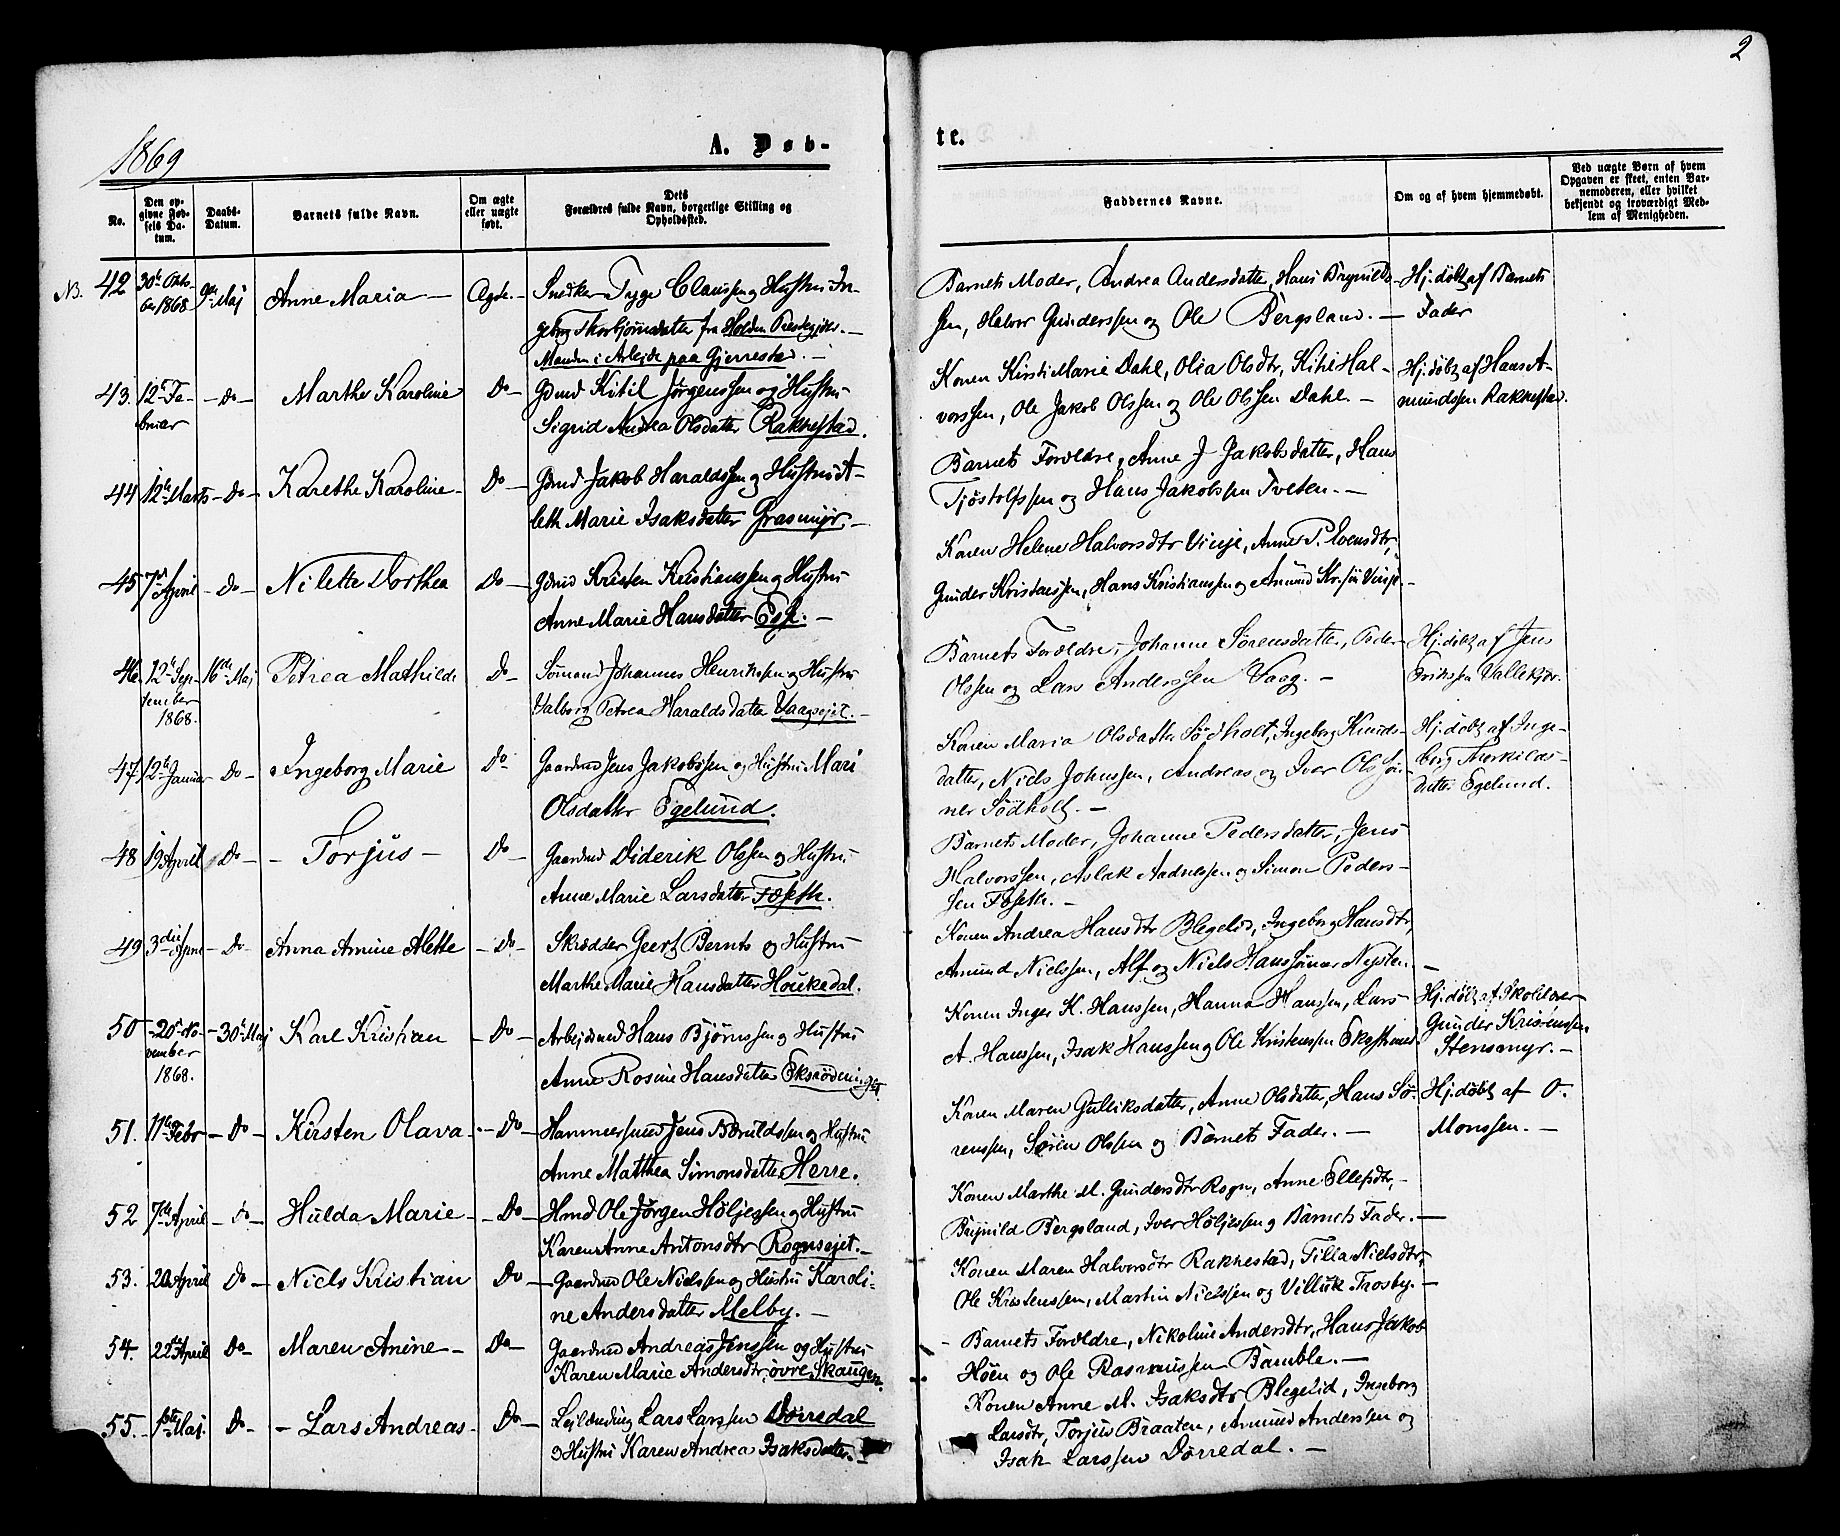 2
1869
A. Døb-
te.
No.
Den op-
givne Fød-
sels Da-
tum.
Daabs-
Datum.
Barnets fulde Navn.
Om ægte
eller uægte
født.
Dets
Forældres fulde Navn, borgerlige Stilling og
Opholdssted.
Faddernes Navne.
Om og af hvem hjemmedøbt.
Ved uægte Børn af hvem
Opgaven er skeet, enten Bar-
nemoderen, eller hvilket
bekjendt og troværdigt Med-
lem af Menigheden.
NB. 42 30te Okto-
ber 1868 9de Maj Anne Maria — Ægte. —
Snedker Tyge Claussen og Hustru In-
geborg Thorbjørnsdatter fra Holden Præstegjeld. —
Manden i Arbejde paa Gjerrestad. —
Barnets Moder, Andrea Andersdatter, Hans Brynilds-
sen, Halvor Gunderssen og Ole Bergsland. —
Hj. døbt af Barnets
Fader
43. 12te Fe-
bruar — Do — Marthe Karoline Do —
Gdmd Kitil Jørgenssen og Hustru
Sigrid Andrea Olsdatter Rakkestad.
Konen Kirsti Marie Dahl, Olea Olsdtr, Kitil Hal-
vorssen, Ole Jakob Olssen og Ole Olssen Dahl. —
Hj. døbt af Hans A-
mundssen Rakkestad.
44 12te Marts — Do — Karethe Karoline — Do —
Gdmd Jakob Haraldssen og Hustru A-
leth Marie Isaksdatter Grasmyr. —
Barnets Forældre, Anne J Jakobsdatter, Hans
Tjøstolfssen og Hans Jakobssen Tveten. —
45 7de April — Do — Nilette Dorthea Do —
Gdmd Kristen Kristianssen og Hustru
Anne Marie Hansdatter Esp. —
Karen Helene Halvorsdtr Vinje, Anne P. Evensdtr,
Gunder Kristenssen, Hans Kristianssen og Amund Kr.søn Vinje. —
46 12te Sep-
tember
1868. 16de Maj Petrea Mathilde Do —
Sømand Johannes Henrikssen og Hustru
Valborg Petrea Haraldsdatter Vaagsejet. —
Barnets Forældre, Johanne Sørensdatter, Peder
Olssen og Lars Anderssen Vaag. —
Hj. døbt af Jens
Erikssen Vallekjær.
47 12te Januar Do — Ingeborg Marie Do —
Gaardmd Jens Jakobssen og Hustru Mari
Olsdatter Egelund.
Konen Maria Olsdatter Sødholt, Ingeborg Knuds-
datter, Niels Johnssen, Andreas og Iver Olssøn-
ner Sødholt. —
Hj. døbt af Inge-
borg Therkilds-
datter Egelund.
48 19 April Do — — Torjus — Do —
Gaardmd Diderik Olssen og Hustru
Anne Marie Larsdatter Foseth.
Barnets Moder, Johanne Pedersdatter, Jens
Halvorssen, Aslak Aadnessen og Simon Peders-
sen Foseth. —
49 3die April — Do — Anna Amine Alette — Do —
Skrædder Geert Bernts og Hustru
Marthe Marie Hansdatter Houkedal.
Konen Andrea Hansdtr Blegelid, Ingeborg Hansdtr,
Amund Nielssen, Alf og Niels Hanssønner Nysten. —
50 20de No-
vember
1868. — 30te Maj Karl Kristian — Do —
Arbejdsmd Hans Bjørnssen og Hustru
Anne Rosine Hansdatter Eksrødningen.
Konen Inger K. Hanssen, Hanna Hanssen, Lars
A. Hanssen, Isak Hanssen og Ole Kristenssen Ekstrand.
Hj. døbt af Skolelærer
Gunder Kristenssen
Stensmyr. —
51. 11te Febr — Do — Kirsten Olava — Do —
Hammersmed Jens Børuldssen og Hustru
Anne Matthea Simonsdatter Herre.
Karen Maren Gulliksdatter, Anne Olsdatter, Hans Sø-
renssen, Søren Olssen og Barnets Fader. —
Hj. døbt af O.
Monssen. —
52 7de April — Do — Hulda Marie — — Do —
Hmd Ole Jørgen Høljessen og Hustru
Karen Anne Antonsdtr Rognsejet. —
Konen Marthe M. Gundersdtr Rogn, Anne Ellefsdtr, —
Brynild Bergsland, Iver Høljessen og Barnets Fader. —
53. 20de April Do — Niels Kristian Do —
Gaardmd Ole Nielssen og Hustru Karoli-
ne Andersdatter Melby. —
Konen Maren Halvorsdtr Rakkestad, Tilla Nielsdtr,
Ole Kristenssen, Martin Nielssen og Villuk Trosby. —
54. 22de April Do — Maren Anine — Do —
Gaardmd Andreas Jenssen og Hustru
Karen Marie Andersdtr, øvre Skaugen.
Barnets Forældre, Nikoline Andersdtr, Hans Jakob
Høen og Ole Rasmussen Bamble. —
55. 1ste Maj. Do — — Lars Andreas — Do —
Lejlænding Lars Larssen Dørredal
og Hustru Karen Andrea Isaksdatter. —
Konen Anne M. Isaksdtr Blegelid, Ingeborg
Larsdtr, Torjus Braaten, Amund Anderssen og
Isak Larssen Dørredal. —